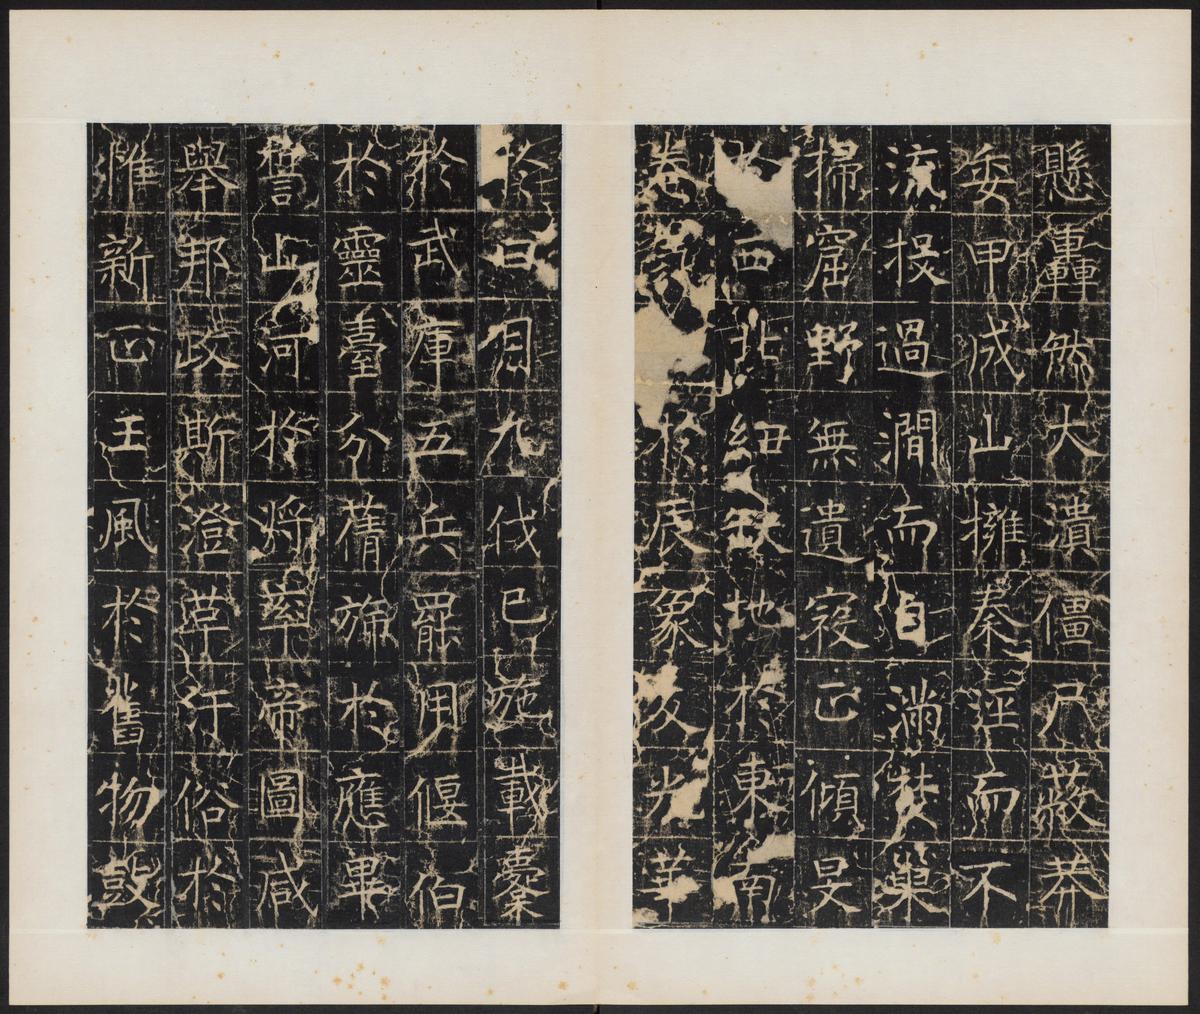 懸轟然大潰僵尸蔽莽
委甲成山擁秦涇而不
流投過澗而自滿焚巢
掃窟野無遺寇正傾旻
於西北紐缺地於東南
卷氛於辰象反光華
於日月九伐已施載櫜
於武庫五兵罷用偃伯
於靈臺分蒨旆於應畢
誓山河於將率帝圖咸
舉邦政斯澄草汙俗於
惟新正王風於舊物